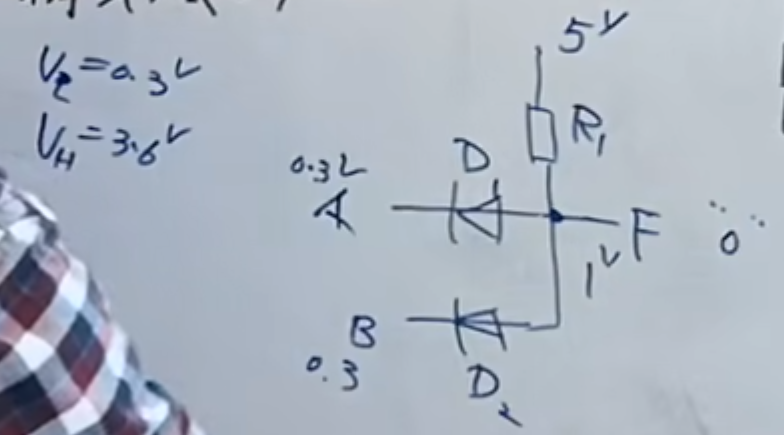 V_L=0.3V
V_H=3.6V
5V
R₁
D
0.3V
A
F
"0"
1V
B
0.3
D₂